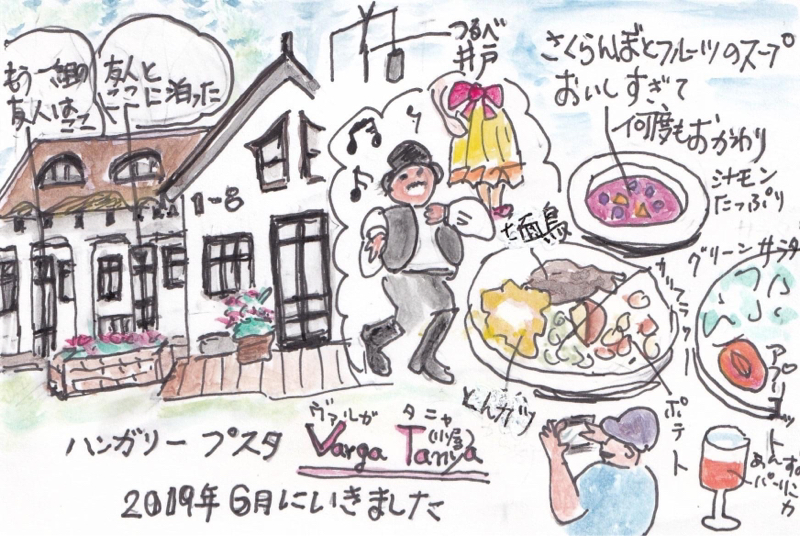 もう一組の
友人は
ここ
友人と
ここ
に泊った
つるべ
井戸
さくらんぼとフルーツのスープ
おいしすぎて
何度もおかわり
シナモン
たっぷり
1-8
七面鳥
グリーンサラダ
カリフラワー
とんカツ
ポテト
アプリコット
あんず
パーリンカ
ハンガリー プスタ
ヴァルガ タニャ
(小屋)
Varga Tanya
2019年6月にいきました